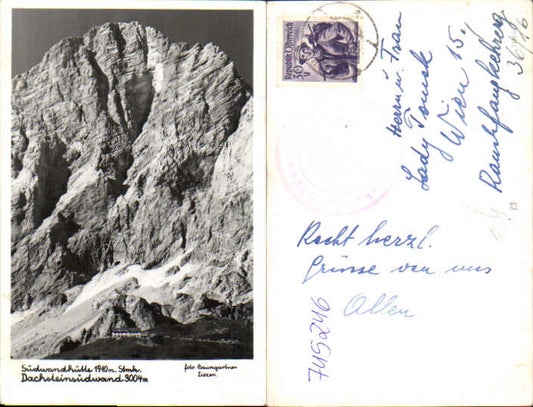 Südwandhütte 1910m. Stmk.
Dachsteinsüdwand 3004m
foto Baumgartner
Liezen.
Republik Österreich
30 g
Herrn u. Frau
Lady Tomsk
Wien 15.
Rauchfangkehrerg.
36/16
Recht herzl.
Grüsse von uns
Allen
745246